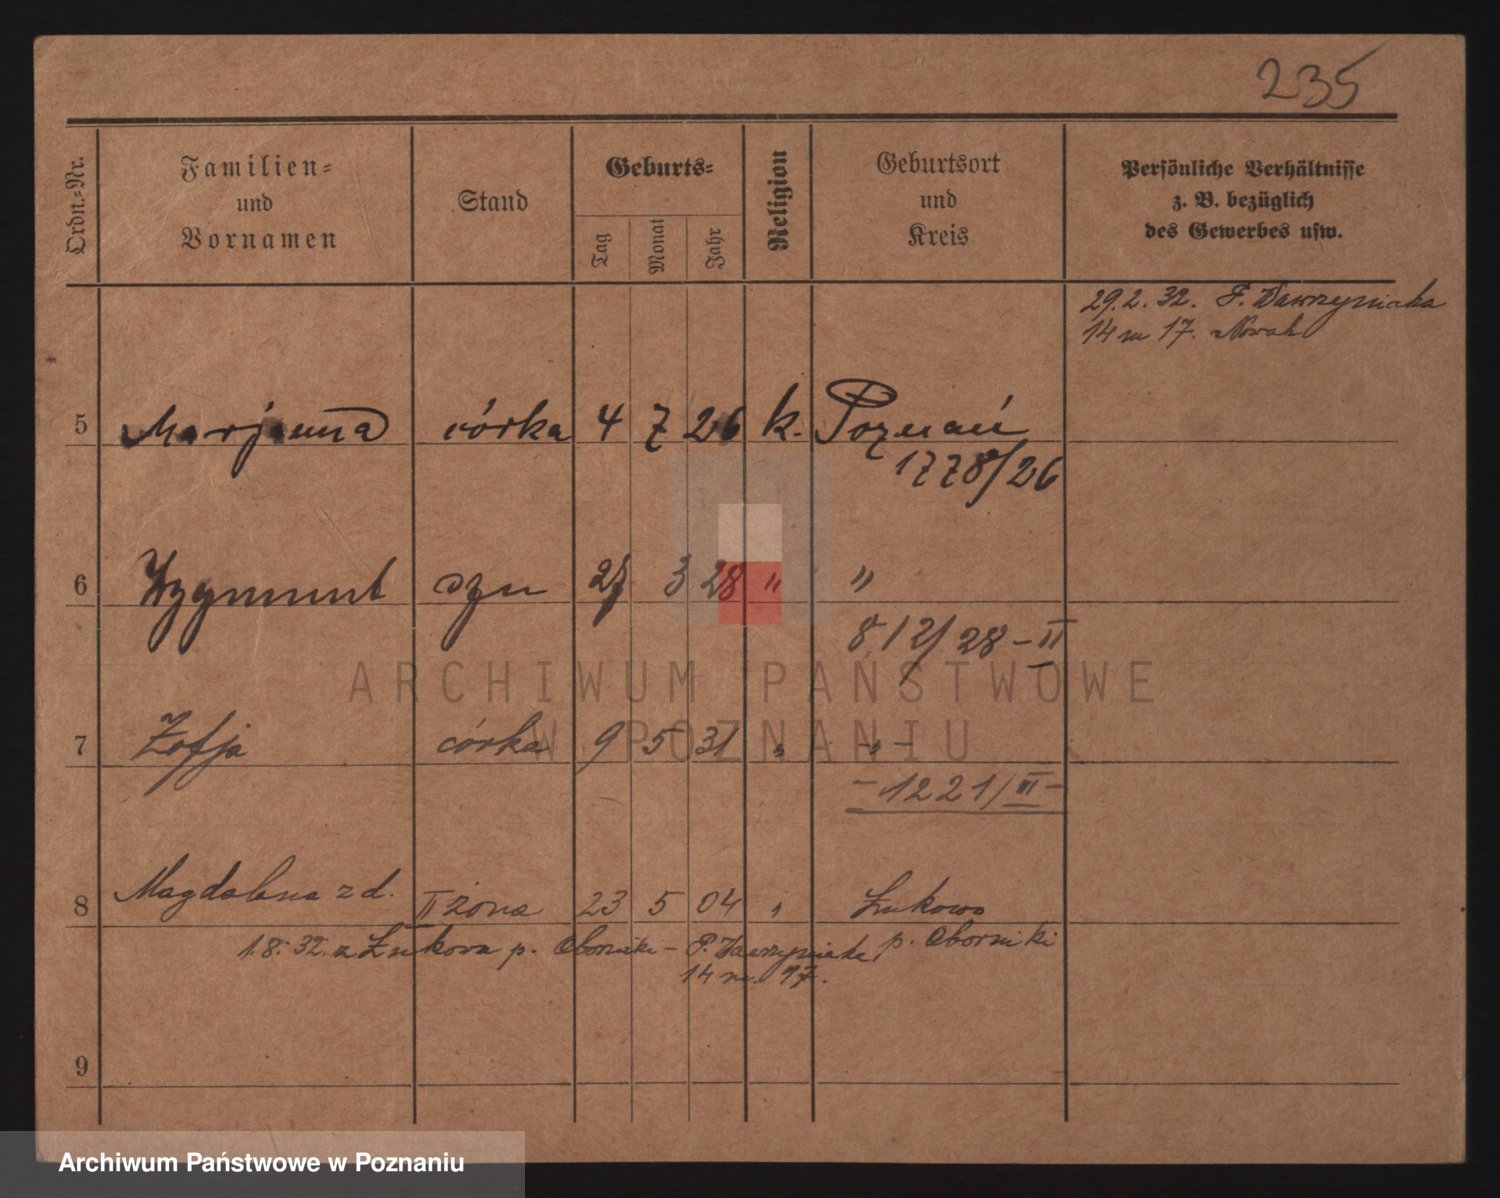 235
Ordn.=Nr.
Familien=
und
Vornamen
Stand
Geburts=
Tag
Monat
Jahr
Religion
Geburtsort
und
Kreis
Persönliche Verhältnisse
z. B. bezüglich
des Gewerbes usw.
29.2.32. F. Wawrzyniaka
14 m 17. Nowak
5 Marjanna córka 4 7 26 k. Poznań
1778/26
6 Zygmunt syn 27 3 28 " "
812/28 - II
7 Zofja córka 9 5 31 " - " -
- 1221/III -
8 Magdalena z d. II żona 23 5 04 " Łukowo
p. Oborniki
1.8.32. z Łukowa p. Oborniki - F. Wawrzyniaka
14 m. 17.
9
ARCHIWUM PAŃSTWOWE
W POZNANIU
Archiwum Państwowe w Poznaniu